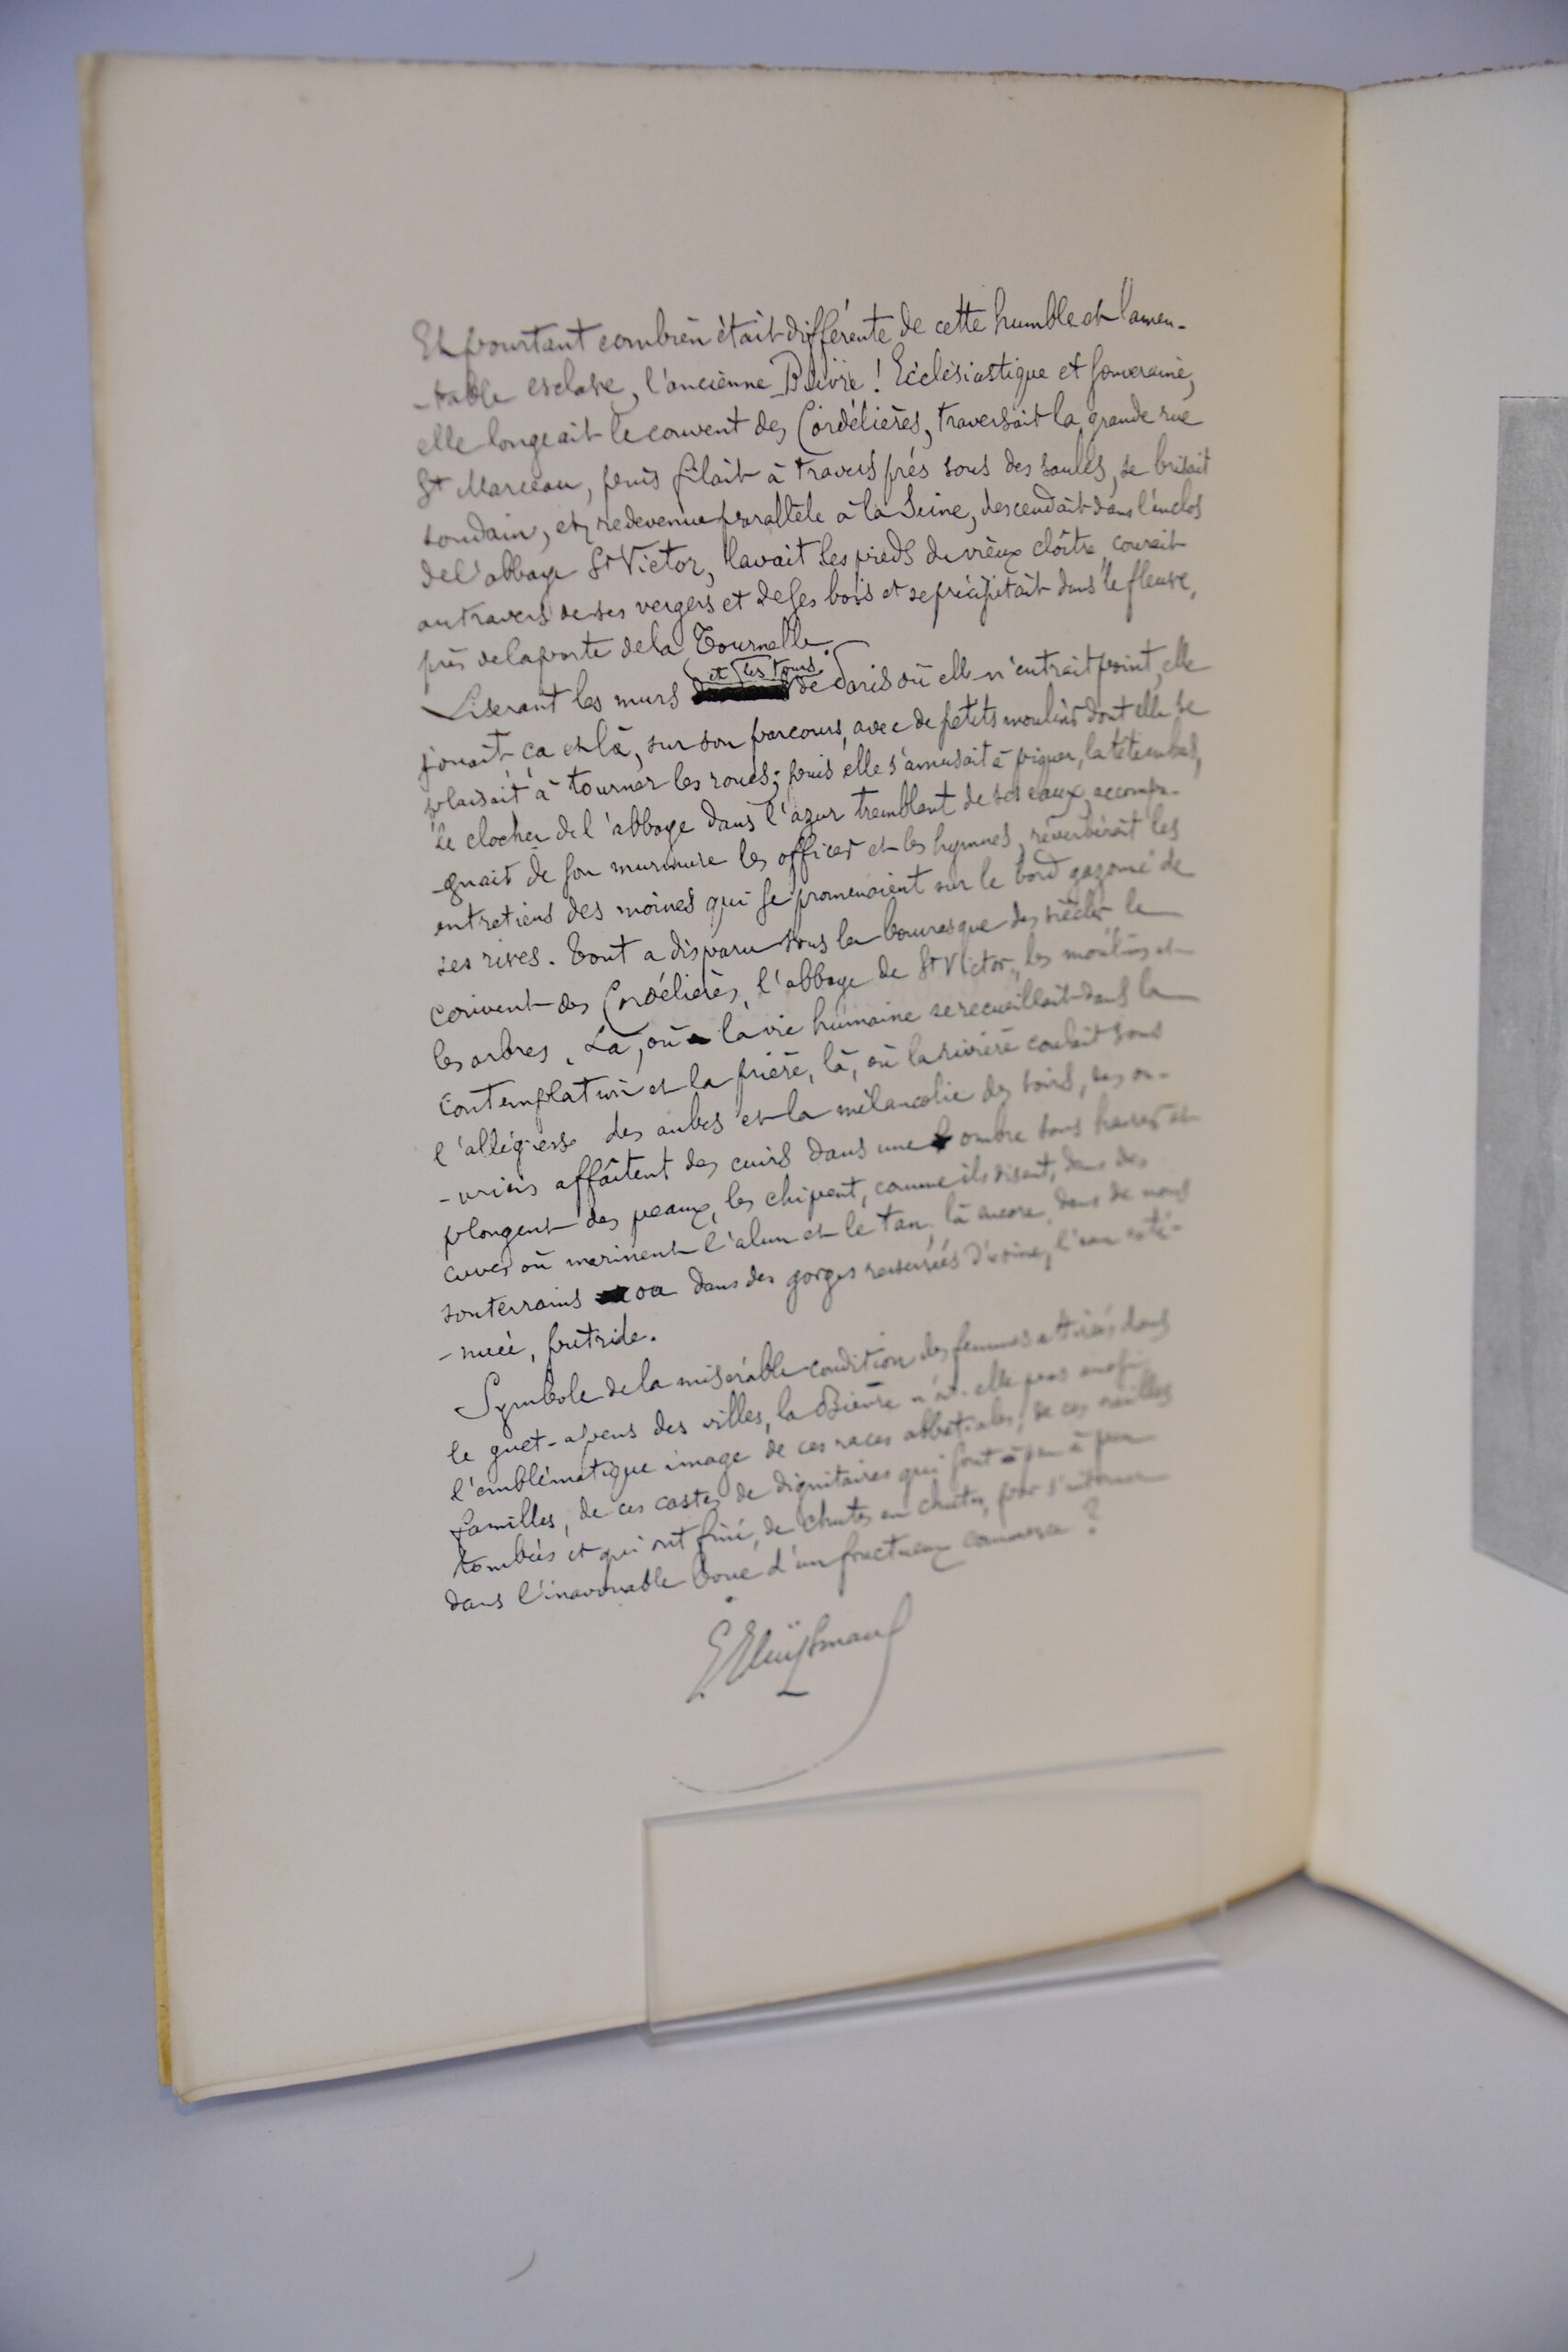 Et pourtant combien était différente de cette humble et lamen-
-table esclave, l'ancienne Bièvre ! Ecclésiastique et souveraine,
elle longeait le couvent des Cordélières, traversait la grande rue
St Marceau, puis filait à travers prés sous des saules, se brisait
soudain, et, redevenue parallèle à la Seine, descendait dans l'enclos
de l'abbaye St Victor, lavait les pieds du vieux cloître, courait
au travers de ses vergers et de ses bois et se précipitait dans le fleuve,
près de la porte de la Tournelle.
Liserant les murs et les tours de Paris où elle n'entrait point, elle
jouait ça et là, sur son parcours, avec de petits moulins dont elle se
plaisait à tourner les roues ; puis elle s'amusait à piquer, la tête en bas,
le clocher de l'abbaye dans l'azur tremblant de ses eaux, accompa-
-gnait de son murmure les offices et les hymnes, réverbérait les
entretiens des moines qui se promenaient sur le bord gazonné de
ses rives. Tout a disparu sous la bourrasque des siècles, le
couvent des Cordélières, l'abbaye de St Victor, les moulins et
les arbres. Là, où la vie humaine se recueillait dans la
contemplation et la prière, là, où la rivière coulait sous
l'allégresse des aubes et la mélancolie des soirs, des ou-
-vriers affaîtent des cuirs dans une ombre sans heures et
plongent des peaux, les chipent, comme ils disent, dans des
cuves où marinent l'alun et le tan, là encore, dans de noirs
souterrains ou dans des gorges resserrées d'usine, l'eau exté-
-nuée, putride.
Symbole de la misérable condition des femmes attirées dans
le guet-apens des villes, la Bièvre n'est-elle pas aussi
l'emblématique image de ces races abbatiales, de ces vieilles
familles, de ces castes de dignitaires qui sont peu à peu
tombées et qui ont fini, de chutes en chutes, par s'interner
dans l'inavouable boue d'un fructueux commerce ?
Huysmans